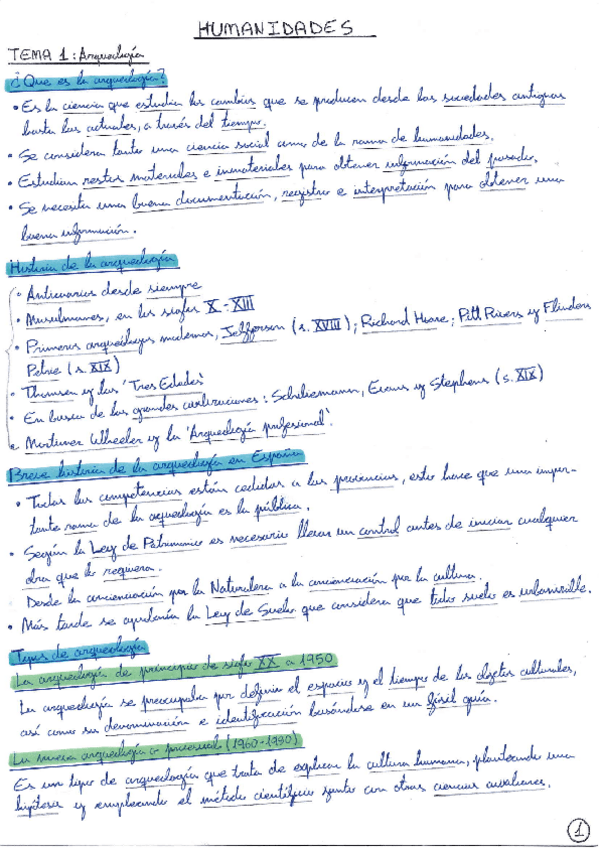 HUMANIDADES
TEMA 1: Arqueología
¿Que es la arqueología?
• Es la ciencia que estudia los cambios que se producen desde las sociedades antiguas
hasta las actuales, a través del tiempo.
• Se considera tanto una ciencia social como de la rama de humanidades.
• Estudian restos materiales e inmateriales para obtener información del pasado.
• Se necesita una buena documentación, registro e interpretación para obtener una
buena información.
Historia de la arqueología
• Anticuarios desde siempre
• Musulmanes, en los siglos X - XIII
• Primeros arqueólogos modernos, Jefferson (s. XVIII); Richard Hoare; Pitt Rivers y Flinders
Petrie (s. XIX)
• Thomsen y las 'Tres Edades'
• En busca de las grandes civilizaciones: Schliemann, Evans y Stephens (s. XIX)
• Mortimer Wheeler y la 'Arqueología profesional'.
Breve historia de la arqueología en España
• Todas las competencias están cedidas a las provincias, esto hace que una impor-
tante rama de la arqueología es la pública.
• Según la Ley de Patrimonio es necesario llevar un control antes de iniciar cualquier
obra que lo requiera.
Desde la concienciación por la Naturaleza a la concienciación por la cultura.
• Más tarde se la Ley de Suelo que considera que todo suelo es urbanizable.
Tipos de arqueología
La arqueología de principios de siglo XX a 1950
La arqueología se preocupaba por definir el espacio y el tiempo de los objetos culturales,
así como su denominación e identificación basándose en un fósil guía.
La nueva arqueología o procesual (1960-1990)
Es un tipo de arqueología que trata de explicar la cultura humana, planteando una
hipótesis y empleando el método científico junto con otras ciencias auxiliares.
1